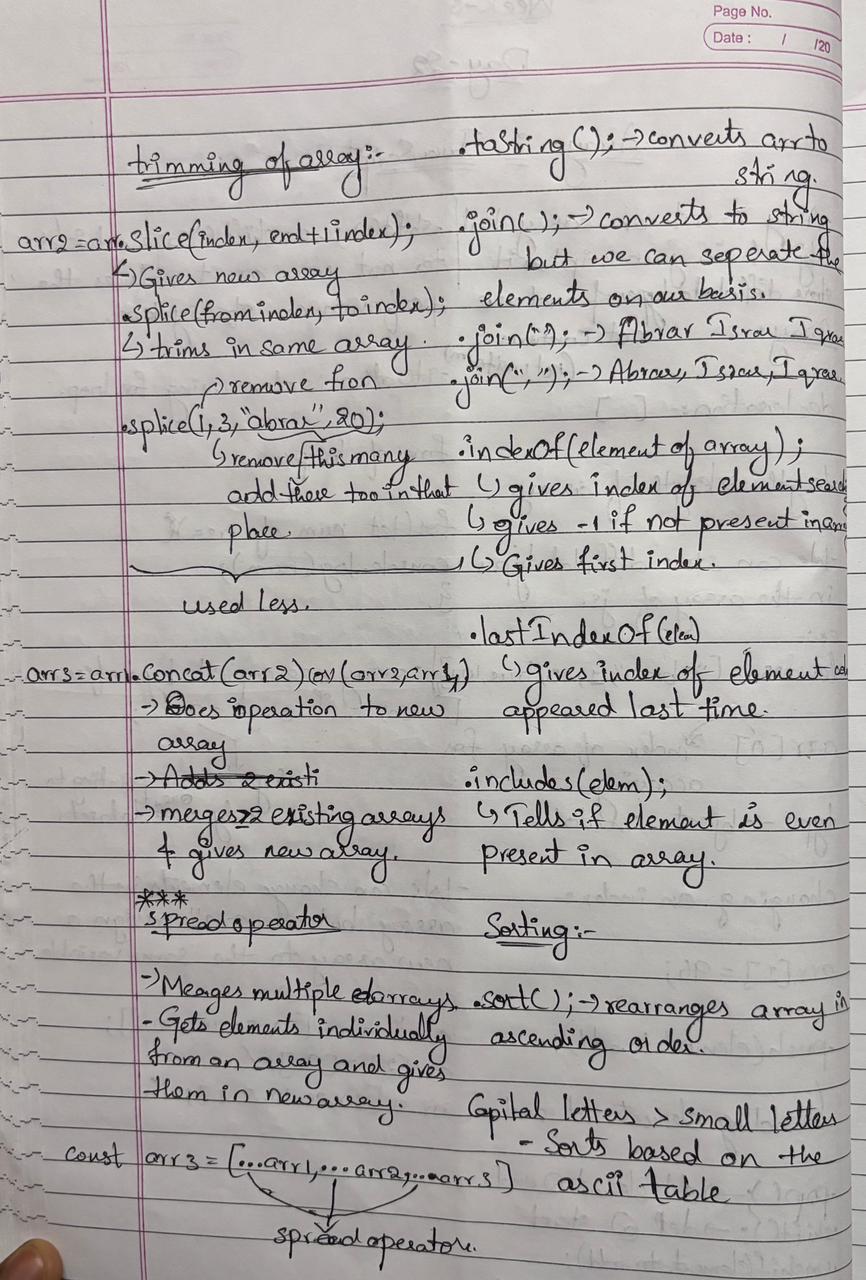 Page No.
Date : / /20
trimming of array:-
arr2=arr.slice(index, end+1index);
↳Gives new array
.splice(fromindex, toindex);
↳trims in same array.
↱remove from
.splice(1,3,"abrar",20);
↳remove this many
add there too in that
place.
used less.
arr3=arr1.concat(arr2) or (arr2,arr4)
→Does operation to new
array
→Adds 2 existi
→merges ≥2 existing arrays
& gives new array.
***
spread operator
→Merges multiple arrays.
- Gets elements individually
from an array and gives
them in new array.
const arr3=[...arr1,...arr2,...arr3]
spread operator.
.toString(); →converts arr to
string.
.join(); →converts to string
but we can seperate the
elements on our basis.
.join(" "); → Abrar Israr Iqrar
.join(", "); → Abrar, Israr, Iqrar
.indexOf(element of array);
↳gives index of element search
↳gives -1 if not present in arr
↳Gives first index.
.lastIndexOf(elem)
↳gives index of element
appeared last time.
.includes(elem);
↳Tells if element is even
present in array.
Sorting:-
.sort(); →rearranges array in
ascending order.
Capital letters > small letters
- Sorts based on the
ascii table